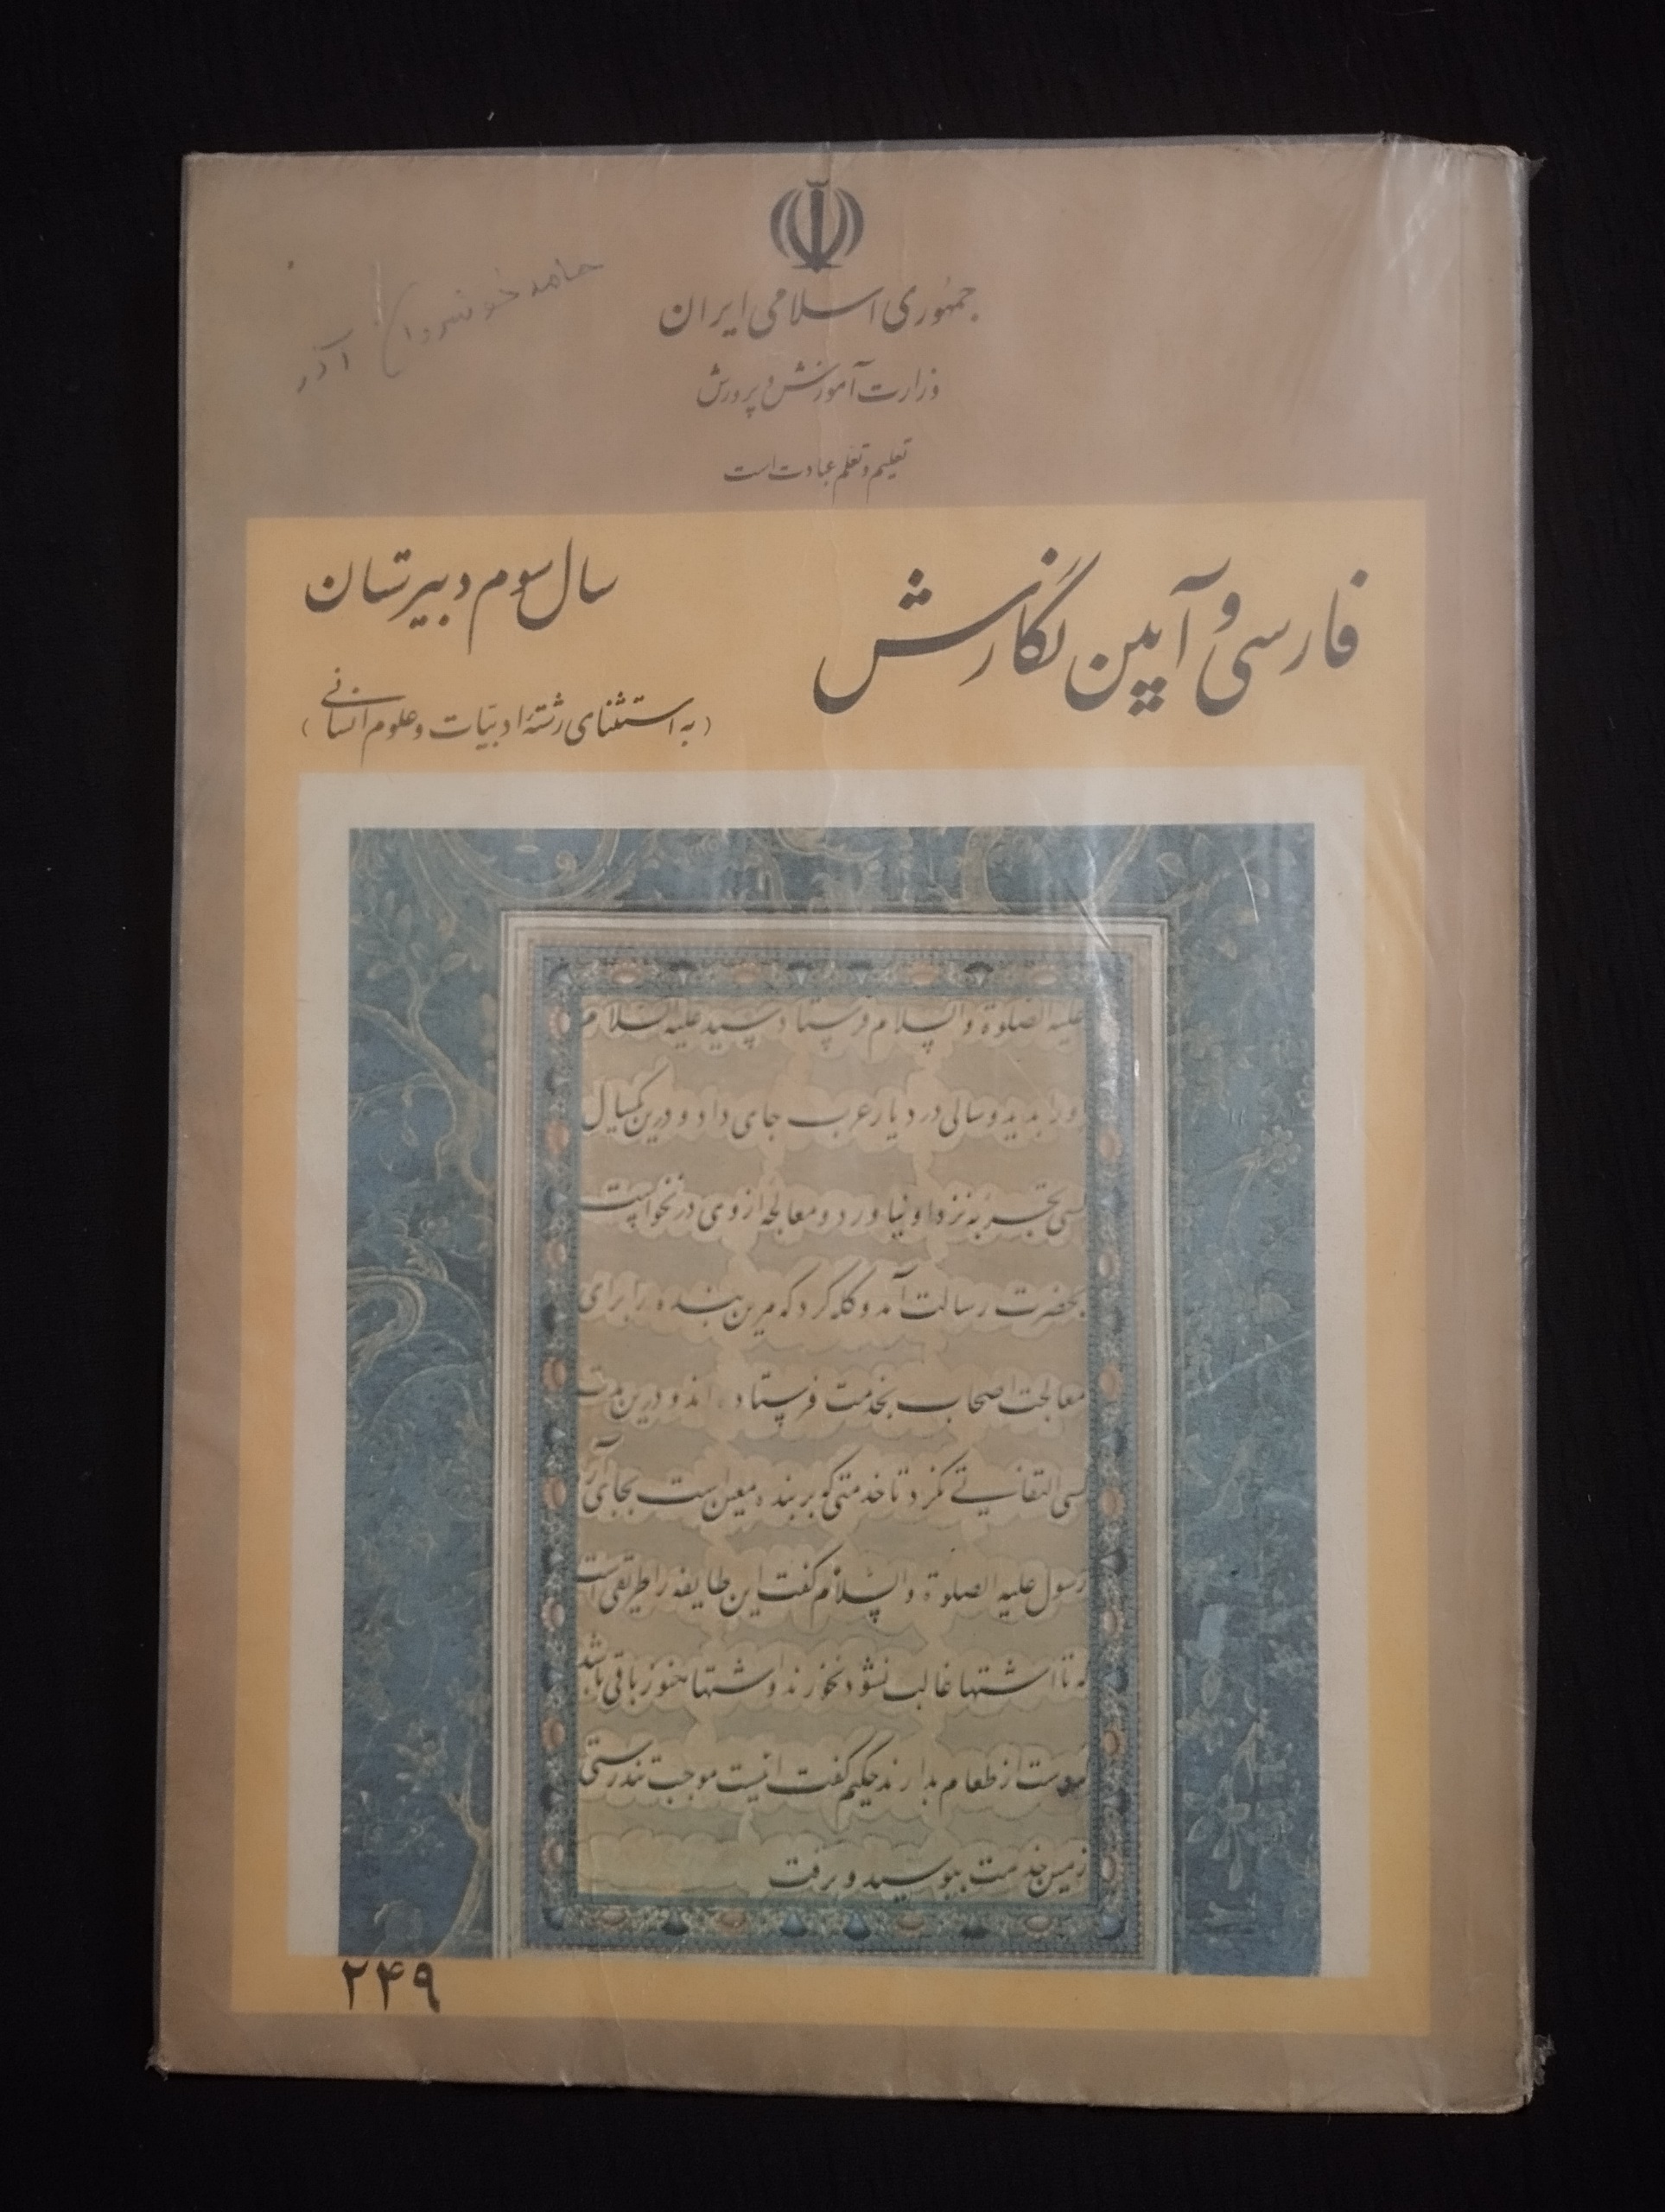 جمهوری اسلامی ایران
وزارت آموزش و پرورش
تعلیم و تعلم عبادت است
حامد آذر
فارسی و آیین نگارش
سال سوم دبیرستان
(به استثنای رشتهٔ ادبیات و علوم انسانی)
علیه الصلوة والسلام فرستاد سید علیه السلام
او را بدید و سالی در دیار عرب جای داد و درین یکسال
کسی بتجربه نزد او نیاورد و معالجهٔ از وی درنخواست
بحضرت رسالت آمد و گله کرد که مرین بنده را برای
معالجت اصحاب بخدمت فرستاده اند و درین مدت
کسی التفاتی نکرد تا خدمتی که بر بنده معین است بجای آرد
رسول علیه الصلوة والسلام گفت این طایفه را طریقی است
که تا اشتها غالب نشود نخورند و اشتها هنوز باقی باشد
دست از طعام بدارند حکیم گفت اینست موجب تندرستی
زمین خدمت ببوسید و برفت
۲۴۹